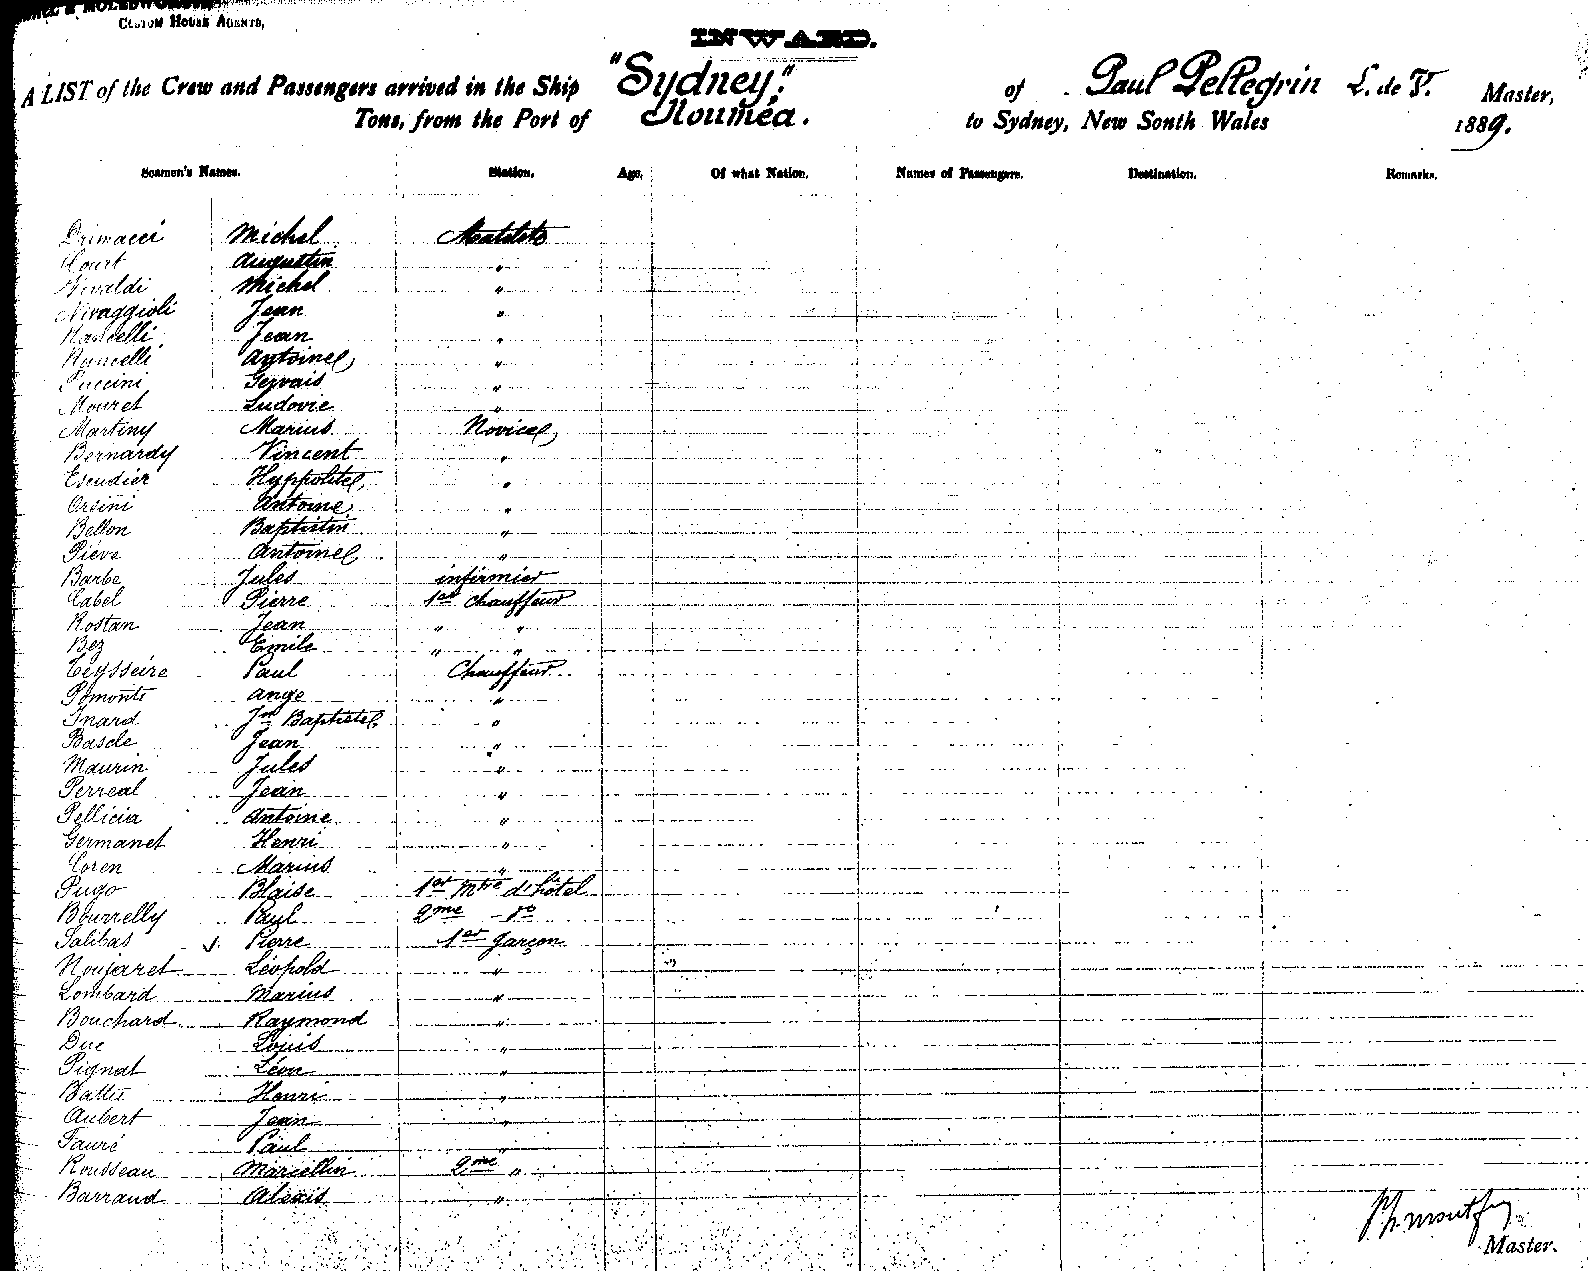 CUSTOM HOUSE AGENTS,
INWARD.
A LIST of the Crew and Passengers arrived in the Ship "Sydney." of Paul Pellegrin L. de V. Master,
Tons, from the Port of Nouméa. to Sydney, New South Wales 1889.
Seamen's Names. Station. Age. Of what Nation. Names of Passengers. Destination. Remarks.
Drimacci Michel Matelots
Court Augustin "
Vivaldi Michel "
Niraggioli Jean "
Jean "
Antoine "
Puccini Gervais "
Mouret Ludovic "
Martiny Marius Novice
Bernardy Vincent "
Escudier Hyppolite "
Orsini Antoine "
Bellon Baptistin "
Piève Antoine "
Barbe Jules infirmier
Cabel Pierre 1er Chauffeur
Rostan Jean " "
Bez Emile " "
Teysseire Paul Chauffeur
Pomonti Ange "
Inard Jn Baptiste "
Bascle Jean "
Maurin Jules "
Perreal Jean "
Pellicia Antoine "
Germanet Henri "
Coren Marius "
Pugo Blaise 1er Mtre d'hôtel
Bourrelly Paul 2me - do
Salibas Pierre 1er Garçon
Noujaret Léopold "
Lombard Marius "
Bouchard Raymond "
Duc Louis "
Pignat Léon "
Henri "
Aubert Jean "
Fauré Paul "
Rousseau Marcellin 2me "
Barraud Alexis "
Master.